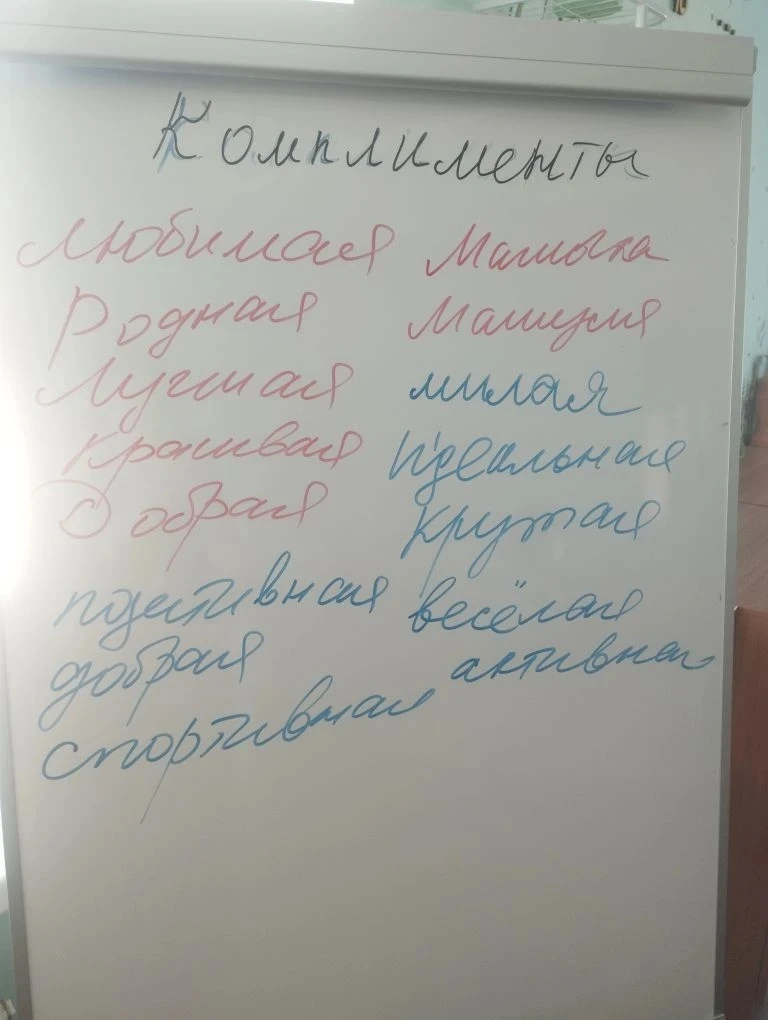 Комплименты
Любимая Мамочка
Родная Мамуля
Лучшая милая
Красивая идеальная
Добрая крутая
позитивная весёлая
добрая активная
спортивная